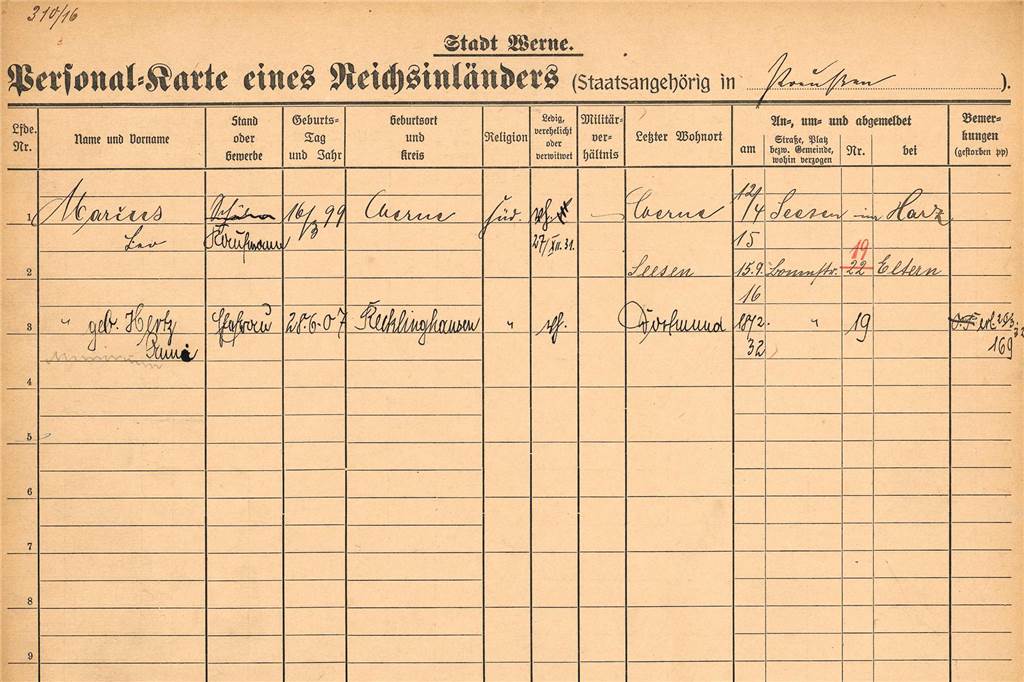 310/16
Stadt Werne.
Personal-Karte eines Reichsinländers (Staatsangehörig in Preußen ).
Lfde. Nr. Name und Vorname Stand oder Gewerbe Geburts-Tag und Jahr Geburtsort und Kreis Religion Ledig, verehelicht oder verwitwet Militär-ver-hältnis Letzter Wohnort An-, um- und abgemeldet Bemer-kungen (gestorben pp)
am Straße, Platz bezw. Gemeinde, wohin verzogen Nr. bei
1 Marcus Schüler 16/3 99 Werne jüd. vh. Werne 12/4 Seesen im Harz
Leo Kaufmann 27/XII.31. 15
19
2 Seesen 15.9. Bonnstr. 22 Eltern
16
3 " geb. Hertz Ehefrau 28.6.07 Recklinghausen " vh. Dortmund 18/2. " 19
32 169
4
5
6
7
8
9